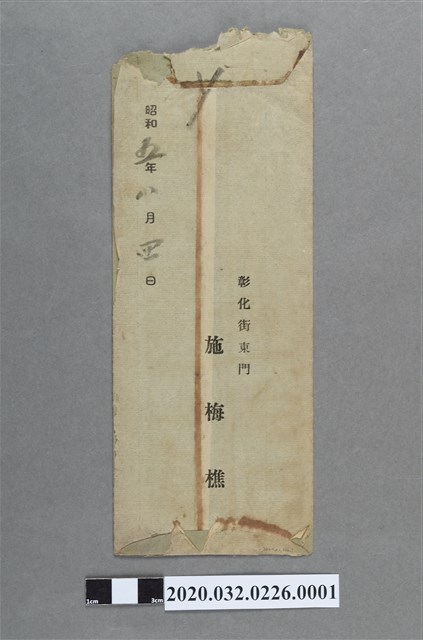 彰化街東門
施梅樵
昭和五年八月四日
1cm 3cm
2020.032.0226.0001